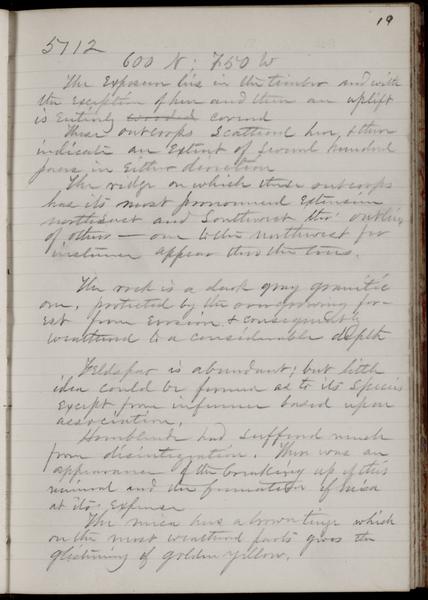 19
5112
600 N; 750 W
The Exposure lies in the timber and with
the exception of here and there an uplift
is Entirely wooded covered
These outcrops Scattered here, & there
indicate an Extent of Several hundred
paces in Either direction
The ridge on which these outcrops
has its most pronounced Extension
northeast and Southwest tho' outliers
of others — one to the northwest for
instance appear thro the trees.
The rock is a dark gray granitic
one, protected by the overgrowing for-
est from Erosion & consequently
weathered to a considerable depth
Feldspar is abundant; but little
idea could be formed as to its Species
Except from inference based upon
association.
Hornblende had suffered much
from disintegration. There was an
appearance of the breaking up of this
mineral and the formation of mica
at its Expense
The mica has a brown tinge which
on the most weathered parts gives the
glistening of golden yellow.